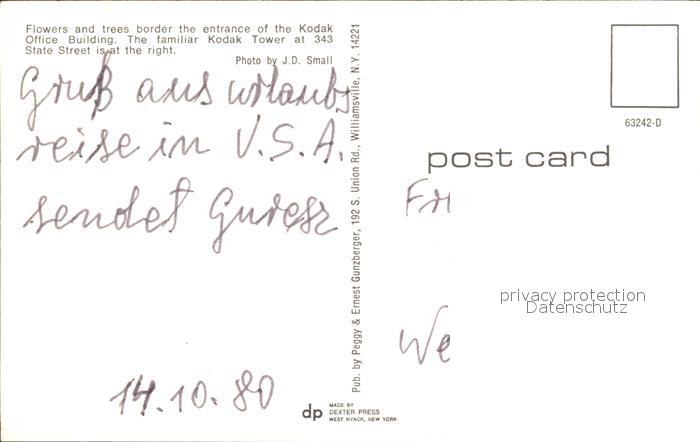 Flowers and trees border the entrance of the Kodak
Office Building. The familiar Kodak Tower at 343
State Street is at the right.
Photo by J.D. Small
Gruß aus urlaubs
reise in V.S.A.
sendet
14.10.80
Pub. by Peggy & Ernest Gunzberger, 192 S. Union Rd., Williamsville, N.Y. 14221
dp
MADE BY
DEXTER PRESS
WEST NYACK, NEW YORK
63242-D
post card
We
privacy protection
Datenschutz